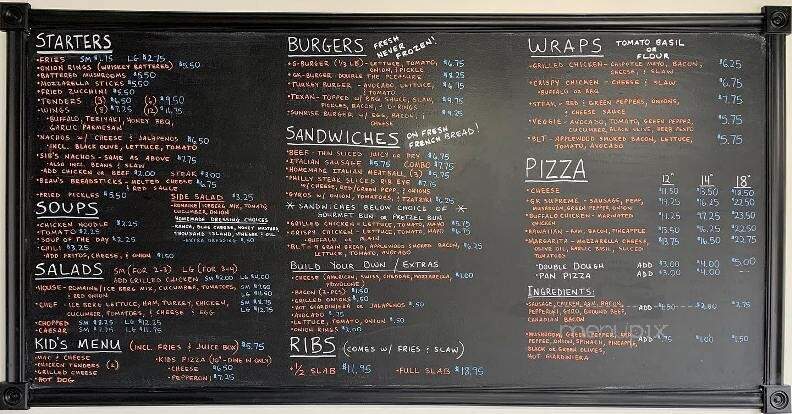 STARTERS
•FRIES SM $1.75 LG $2.75
•ONION RINGS (WHISKEY BATTERED) $5.50
•BATTERED MUSHROOMS $5.50
•MOZZARELLA STICKS $5.50
•FRIED ZUCCHINI $5.50
•TENDERS (3) $6.50 (6) $9.50
•WINGS
•BUFFALO, TERIYAKI, HONEY BBQ,
GARLIC PARMESAN
•NACHOS W/ CHEESE & JALAPENOS $6.50
•INCL. BLACK OLIVE, LETTUCE, TOMATO
•SIB'S NACHOS - SAME AS ABOVE $7.75
•ALSO INCL. BEANS & SLAW
•ADD CHICKEN OR BEEF $2.00 STEAK $3.00
•BEAN'S BREADSTICKS - MELTED CHEESE $6.75
& RED SAUCE
•FRIED PICKLES $5.50
SIDE SALAD $3.25
•ROMAINE/ICEBERG MIX, TOMATO,
CUCUMBER, ONION
HOMEMADE DRESSING CHOICES
•RANCH, BLEU CHEESE, HONEY MUSTARD,
THOUSAND ISLAND, CREAMY & OIL
•EXTRA DRESSING $.50
SOUPS
•CHICKEN NOODLE $2.25
•TOMATO $2.25
•SOUP OF THE DAY $2.25
•CHILI $3.25
•ADD FRITOS, CHEESE, & ONION $1.50
SALADS SM (FOR 2-3) LG (FOR 3-4)
ADD GRILLED CHICKEN SM $2.00 LG $4.00
•HOUSE - ROMAINE/ICEBERG MIX, CUCUMBER, TOMATOES,
& RED ONION
•CHEF - ICEBERG LETTUCE, HAM, TURKEY, CHICKEN,
CUCUMBER, TOMATOES, & CHEESE & EGG
•CHOPPED SM $8.25 LG $12.25
•CAESAR
KID'S MENU (INCL. FRIES & JUICE BOX) $5.75
•MAC & CHEESE
•CHICKEN TENDERS (2)
•GRILLED CHEESE
•HOT DOG
•KIDS PIZZA (10" - DINE IN ONLY)
•CHEESE $6.50
•PEPPERONI $7.25
BURGERS FRESH
NEVER
FROZEN!
•G-BURGER (1/3 LB) - LETTUCE, TOMATO, $6.75
ONION, PICKLE
•GK-BURGER - DOUBLE THE PLEASURE $8.25
•TURKEY BURGER - AVOCADO, LETTUCE, $6.75
& TOMATO
•TEXAN - TOPPED W/ BBQ SAUCE, SLAW, $9.75
PICKLES, BACON, & O-RINGS
•SUNRISE BURGER W/ EGG, BACON, & $9.25
CHEESE
SANDWICHES ON FRESH
FRENCH BREAD!
•BEEF - THIN SLICED JUICY OR DRY $6.75
•ITALIAN SAUSAGE $5.75 COMBO $7.75
•HOMEMADE ITALIAN MEATBALL (3) $5.75
•PHILLY STEAK SLICED RIB EYE $7.75
W/ CHEESE, RED/GREEN PEPP, & ONIONS
•GYROS W/ ONION, TOMATOES, & TZATZIKI $6.75
* SANDWICHES BELOW CHOICE
GOURMET BUN OR PRETZEL BUN
•GRILLED CHICKEN - LETTUCE, TOMATO, MAYO $5.75
•CRISPY CHICKEN - LETTUCE, TOMATO, MAYO $6.75
•BUFFALO OR PLAIN
•BLT - 9 GRAIN BREAD, APPLEWOOD SMOKED BACON, $6.25
LETTUCE, TOMATO
BUILD YOUR OWN / EXTRAS
•CHEESE (AMERICAN, SWISS, CHEDDAR, MOZZARELLA, $1.00
PROVOLONE)
•BACON (2-PCS) $1.50
•GRILLED ONIONS $.50
•HOT GIARDINIERA OR JALAPENOS $.50
•AVOCADO $.75
•LETTUCE, TOMATO, ONION $.50
•ONION RINGS $2.00
RIBS (COMES W/ FRIES & SLAW)
•1/2 SLAB $11.95 •FULL SLAB $18.95
WRAPS TOMATO BASIL
OR
FLOUR
•GRILLED CHICKEN - CHIPOTLE MAYO, BACON, $6.25
CHEESE, & SLAW
•CRISPY CHICKEN - CHEESE & SLAW $6.75
•BUFFALO OR BBQ
•STEAK - RED & GREEN PEPPERS, ONIONS, $7.75
& CHEESE SAUCE
•VEGGIE - AVOCADO, TOMATO, GREEN PEPPER, $5.75
CUCUMBER, BLACK OLIVE, HERB PESTO
•BLT - APPLEWOOD SMOKED BACON, LETTUCE, $5.75
TOMATO, AVOCADO
PIZZA 12" 14" 18"
•CHEESE
•GK SUPREME - SAUSAGE, PEPP,
MUSHROOM, GREEN PEPPER, ONION
•BUFFALO CHICKEN - MARINATED
CHICKEN
•HAWAIIAN - HAM, BACON, PINEAPPLE
•MARGARITA - MOZZARELLA CHEESE,
OLIVE OIL, GARLIC, BASIL,
TOMATO
•DOUBLE DOUGH ADD $3.00 $4.00 $5.00
•PAN PIZZA ADD $3.00 $4.00
INGREDIENTS:
•SAUSAGE, CHICKEN, HAM, BACON, ADD $1.50 $2.00 $2.75
PEPPERONI, GYRO, GROUND BEEF,
CANADIAN BACON
•MUSHROOM, GREEN PEPPER, RED
PEPPER, ONION, SPINACH, PINEAPPLE, ADD
BLACK OR GREEN OLIVES,
HOT GIARDINIERA
menupix